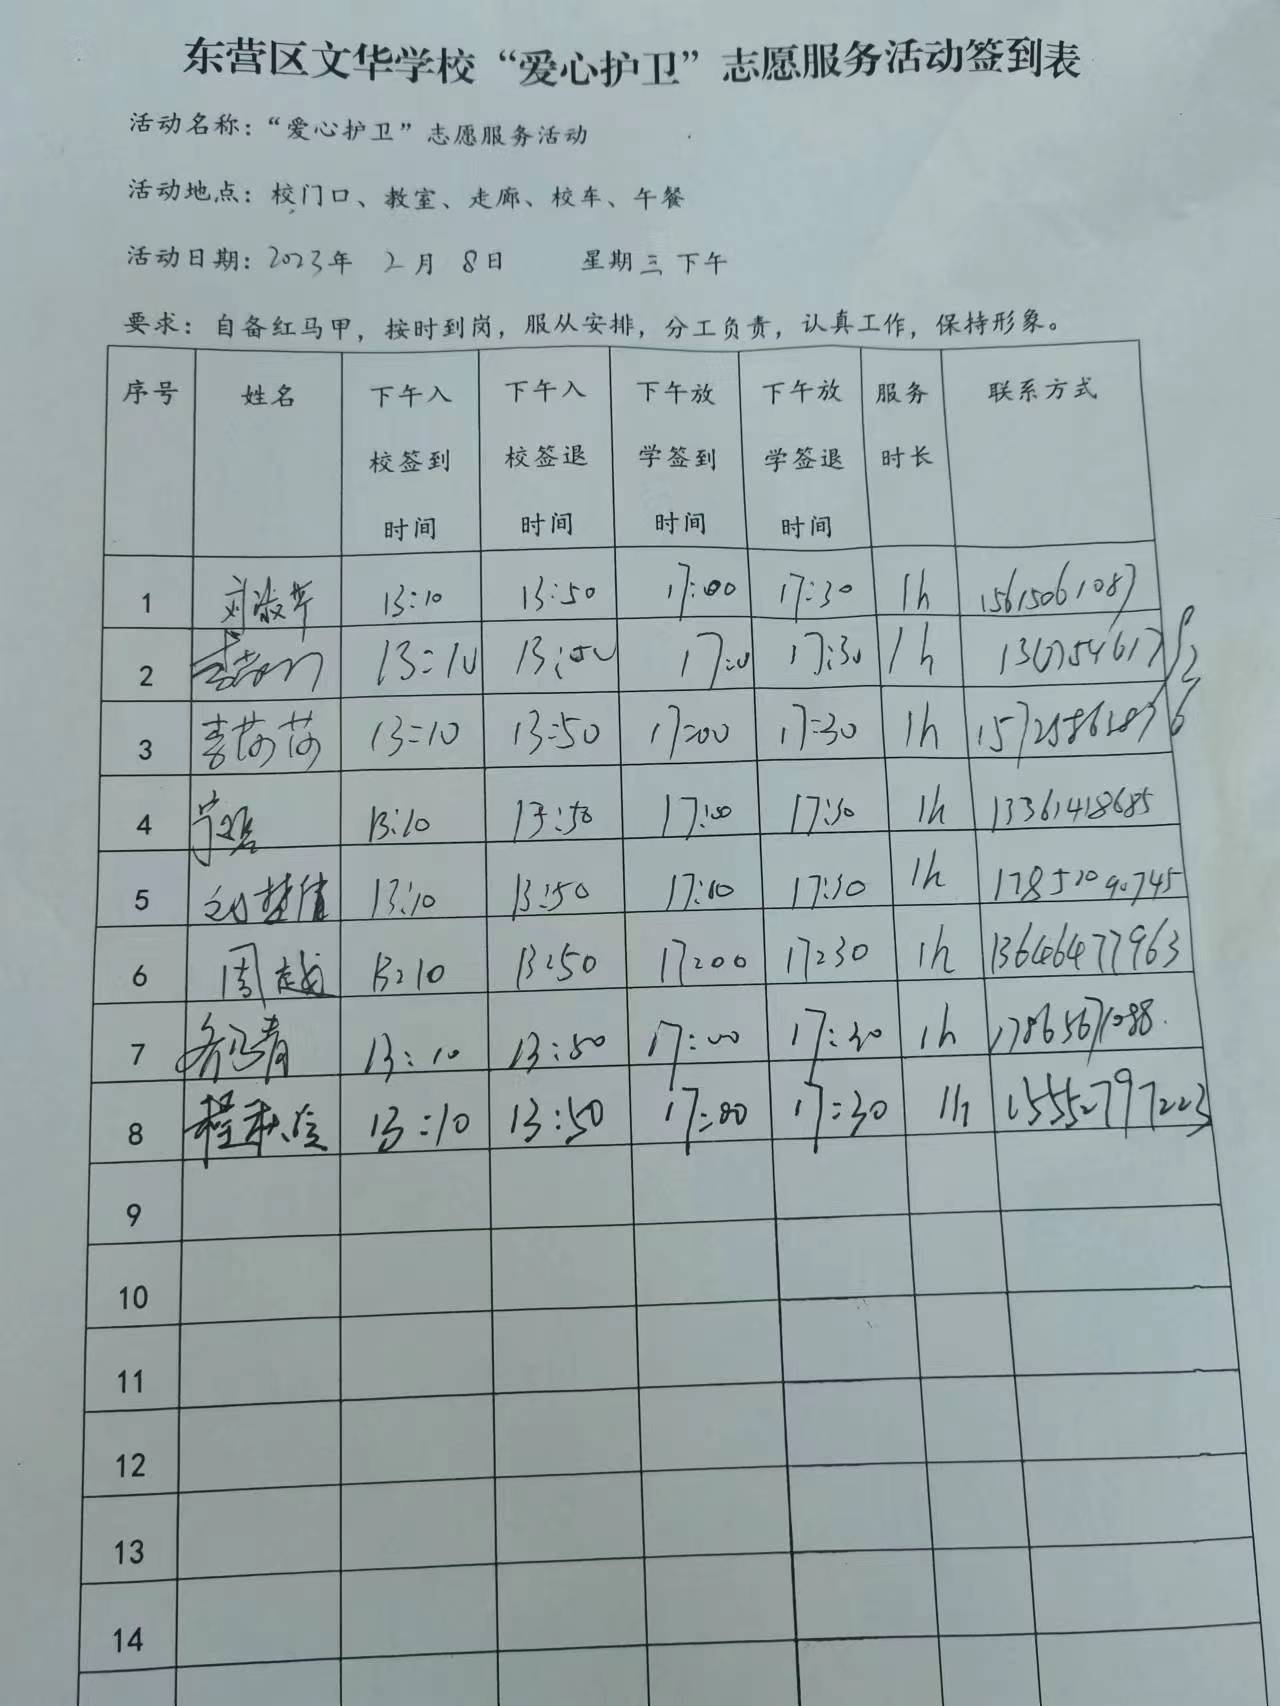 东营区文华学校“爱心护卫”志愿服务活动签到表
活动名称：“爱心护卫”志愿服务活动
活动地点：校门口、教室、走廊、校车、午餐
活动日期：2023年 2月 8日 星期三下午
要求：自备红马甲，按时到岗，服从安排，分工负责，认真工作，保持形象。
序号 姓名 下午入校签到时间 下午入校签退时间 下午放学签到时间 下午放学签退时间 服务时长 联系方式
1 13:10 13:50 17:00 17:30 1h 15615061087
2 13:10 13:50 17:00 17:30 1h
3 李莎莎 13:10 13:50 17:00 17:30 1h 15725862876
4 13:10 13:50 17:00 17:30 1h 13361418685
5 13:10 13:50 17:00 17:30 1h 17852090745
6 周越 13:10 13:50 17:00 17:30 1h 13646477963
7 13:10 13:50 17:00 17:30 1h 17865671088
8 程秋玲 13:10 13:50 17:00 17:30 1h 15552797223
9
10
11
12
13
14